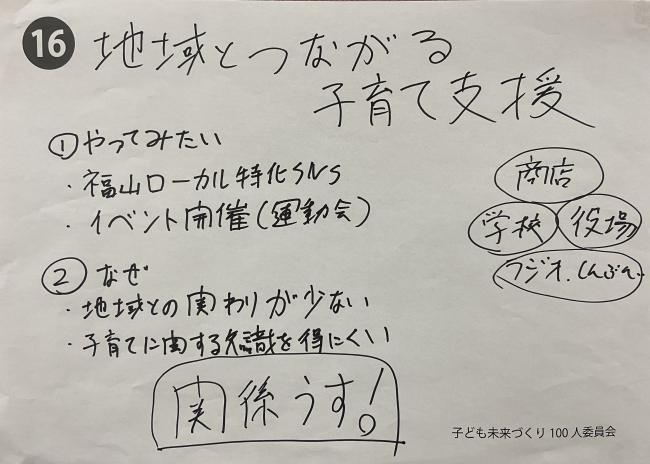 16 地域とつながる
子育て支援
① やってみたい
・福山ローカル特化SNS
・イベント開催(運動会)
商店
学校 役場
ラジオ.しんぶん.
② なぜ
・地域との関わりが少ない
・子育てに関する知識を得にくい
関係うす!
子ども未来づくり100人委員会